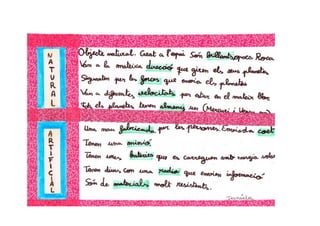 NATURAL
Objecte natural. Creat a l'espai Són brillants, poca Rosca
Van a la mateixa direcció que giren els seus planetes
Segueixen per les forces que envia els planetes
Van a diferentes velocitats per estar en el mateix lloc
Tots els planetes tenen almenys un (Mercuri i Venus no)
ARTIFICIAL
Una nau fabricada per les persones. Enviada coet
Tenen una missió
Tenen unes bateries que es carreguen amb energia solar
Tenen dins com una radio que envien informació
Són de materials molt resistents.